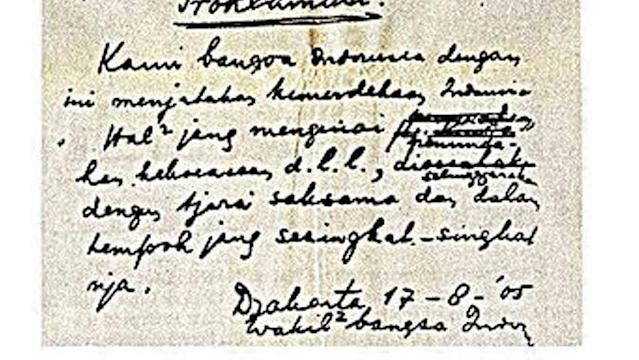 Proklamasi.
Kami bangsa Indonesia dengan
ini menjatakan kemerdekaan Indonesia
. Hal² jang mengenai
peminda-
han kekoeasaan d.l.l., diselenggarakan
dengan tjara saksama dan dalam
tempoh jang sesingkat-singkat
nja.
Djakarta, 17 - 8 - '05
Wakil² bangsa Indon.